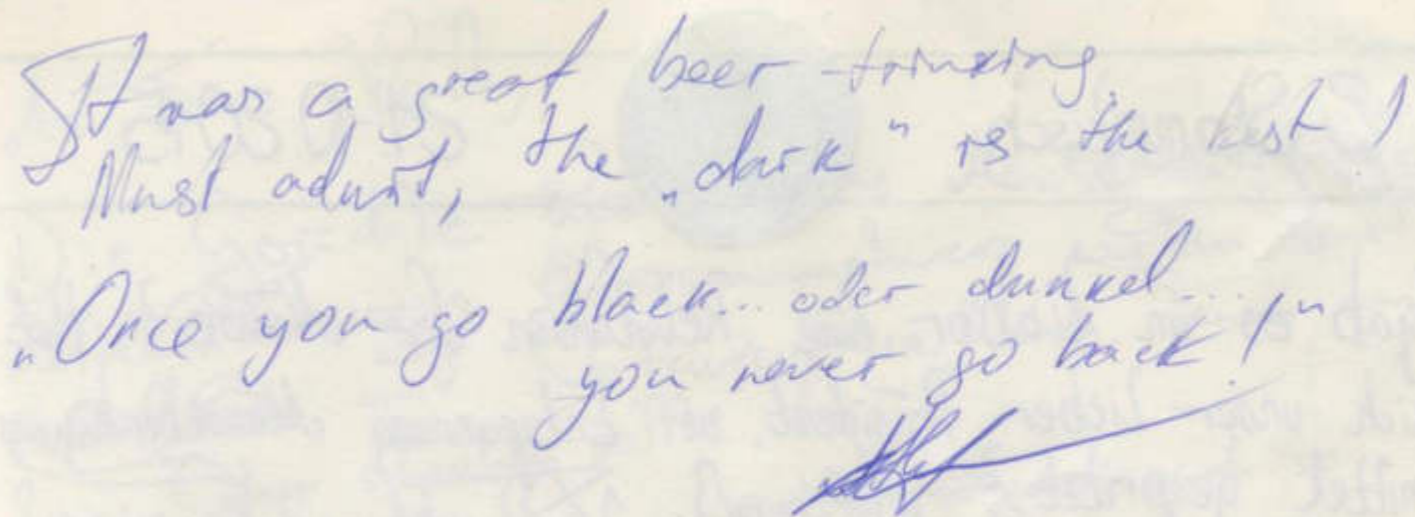 It was a great beer trinking.
Must admit, the „dark" is the best!
„Once you go black... oder dunkel...
you never go back!"